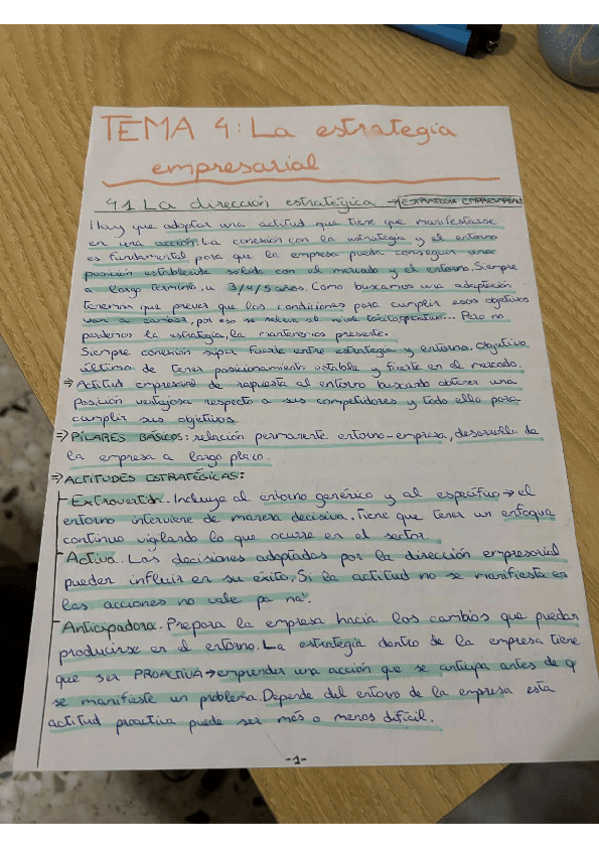 TEMA 4: La estrategia
empresarial
4.1 La dirección estratégica → ESTRATEGIA EMPRESARIAL
Hay que adoptar una actitud que tiene que manifestarse
en una acción. La conexión con la estrategia y el entorno
es fundamental para que la empresa pueda conseguir una
posición establecida solida con el mercado y el entorno. Siempre
a largo termino, a 3/4/5 años. Como buscamos una adaptación
tenemos que prever que las condiciones para cumplir esos objetivos
van a cambiar, por eso se al nivel táctico/operativo... Pero no
perdemos la estrategia, la mantenemos presente.
Siempre conexión super fuerte entre estrategia y entorno. Objetivo
última de tener posicionamiento estable y fuerte en el mercado.
⇒ Actitud empresarial de respuesta al entorno buscando obtener una
posición ventajosa respecto a sus competidores y todo ello para
cumplir sus objetivos.
⇒ PILARES BÁSICOS: relación permanente entorno-empresa, desarrollo de
la empresa a largo plazo.
⇒ ACTITUDES ESTRATÉGICAS:
Extrovertida. Incluye al entorno genérico y al específico → el
entorno interviene de manera decisiva. Tiene que tener un enfoque
continuo vigilando lo que ocurre en el sector.
Activa. Las decisiones adoptadas por la dirección empresarial
pueden influir en su éxito. Si la actitud no se manifiesta en
las acciones no vale pa na'.
Anticipadora. Prepara la empresa hacia los cambios que puedan
producirse en el entorno. La estrategia dentro de la empresa tiene
que ser PROACTIVA → emprender una acción que se anticipa antes de q
se manifieste un problema. Depende del entorno de la empresa esta
actitud proactiva puede ser más o menos difícil.
-1-